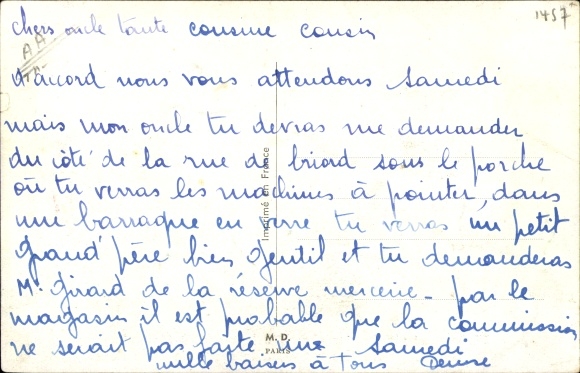 1457
chers oncle tante cousine cousin
d'accord nous vous attendons Samedi
mais mon oncle tu devras me demander
du côté de la rue de briord sous le porche
où tu verras les machines à pointer, dans
une barraque en verre tu verras un petit
grand'père bien gentil et tu demanderas
Mr Girard de la réserve mercerie - par le
magasin il est probable que la commission
ne serait pas faite Samedi
mille baisers à Tous Denise
Imprimé en France
M. D.
PARIS